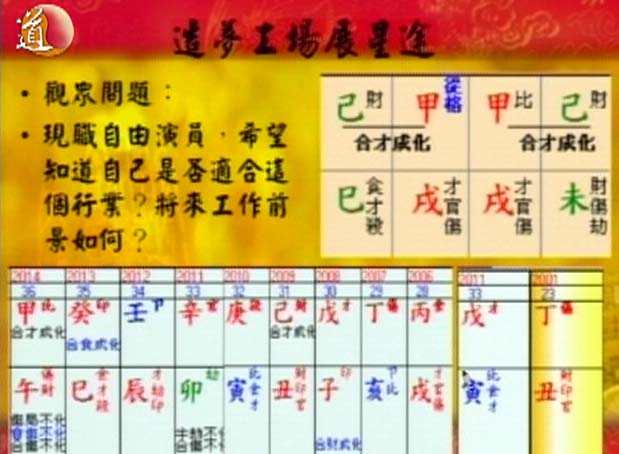 道
造夢工場展星途
• 觀眾問題：
• 現職自由演員，希望
知道自己是否適合這
個行業？將來工作前
景如何？
己財 甲從格 甲比 己財
合才成化 合才成化
巳食才殺 戌才官傷 戌才官傷 未財傷劫
2014 2013 2012 2011 2010 2009 2008 2007 2006
36 35 34 33 32 31 30 29 28
甲比 癸印 壬卩 辛官 庚殺 己財 戊才 丁傷 丙食
合才成化 合食成化 合才成化
午傷財 巳食才殺 辰才劫印 卯劫 寅比食才 丑財印官 子印 亥卩比 戌才官傷
傷局不化
合傷不化 合劫不化 合財成化
2011 2001
33 23
戊才 丁傷
寅比食才 丑財印官